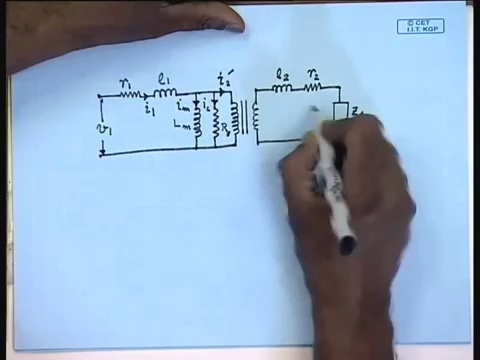 © CET
I.I.T. KGP
r₁ l₁ i₂′ l₂ r₂
i₁ iₘ
v₁ Lₘ